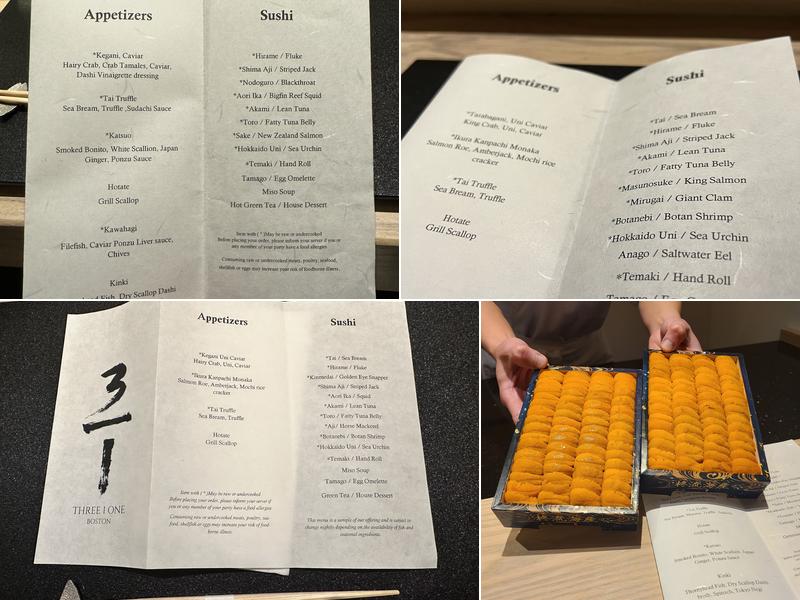 Appetizers
*Kegani, Caviar
Hairy Crab, Crab Tamales, Caviar,
Dashi Vinaigrette dressing
*Tai Truffle
Sea Bream, Truffle ,Sudachi Sauce
*Katsuo
Smoked Bonito, White Scallion, Japan
Ginger, Ponzu Sauce
Hotate
Grill Scallop
*Kawahagi
Filefish, Caviar Ponzu Liver sauce,
Chives
Kinki
Fish, Dry Scallop Dashi
Sushi
*Hirame / Fluke
*Shima Aji / Striped Jack
*Nodoguro / Blackthroat
*Aori Ika / Bigfin Reef Squid
*Akami / Lean Tuna
*Toro / Fatty Tuna Belly
*Sake / New Zealand Salmon
*Hokkaido Uni / Sea Urchin
*Temaki / Hand Roll
Tamago / Egg Omelette
Miso Soup
Hot Green Tea / House Dessert
Item with ( * )May be raw or undercooked
Before placing your order, please inform your server if you or
any member of your party have a food allergies
Consuming raw or undercooked meats, poultry, seafood,
shellfish or eggs may increase your risk of foodborne illness.
Appetizers
*Tarabagani, Uni Caviar
King Crab, Uni, Caviar
*Ikura Kanpachi Monaka
Salmon Roe, Amberjack, Mochi rice
cracker
*Tai Truffle
Sea Bream, Truffle
Hotate
Grill Scallop
Sushi
*Tai / Sea Bream
*Hirame / Fluke
*Shima Aji / Striped Jack
*Akami / Lean Tuna
*Toro / Fatty Tuna Belly
*Masunosuke / King Salmon
*Mirugai / Giant Clam
*Botanebi / Botan Shrimp
*Hokkaido Uni / Sea Urchin
Anago / Saltwater Eel
*Temaki / Hand Roll
3
1
THREE 1 ONE
BOSTON
Appetizers
*Kegani Uni Caviar
Hairy Crab, Uni, Caviar
*Ikura Kanpachi Monaka
Salmon Roe, Amberjack, Mochi rice
cracker
*Tai Truffle
Sea Bream, Truffle
Hotate
Grill Scallop
Item with ( * )May be raw or undercooked
Before placing your order, please inform your server if
you or any member of your party have a food allergies
Consuming raw or undercooked meats, poultry, sea-
food, shellfish or eggs may increase your risk of food-
borne illness.
Sushi
*Tai / Sea Bream
*Hirame / Fluke
*Kinmedai / Golden Eye Snapper
*Shima Aji / Striped Jack
*Aori Ika / Squid
*Akami / Lean Tuna
*Toro / Fatty Tuna Belly
*Aji / Horse Mackerel
*Botanebi / Botan Shrimp
*Hokkaido Uni / Sea Urchin
*Temaki / Hand Roll
Miso Soup
Tamago / Egg Omelette
Green Tea / House Dessert
This menu is a sample of our offering and is subject to
change nightly depending on the availability of fish and
seasonal ingredients.
Hotate
Grill Scallop
*Katsuo
Smoked Bonito, White Scallion, Japan
Ginger, Ponzu Sauce
Kinki
Thornyhead Fish, Dry Scallop Dashi
broth, Spinach, Tokyo Negi